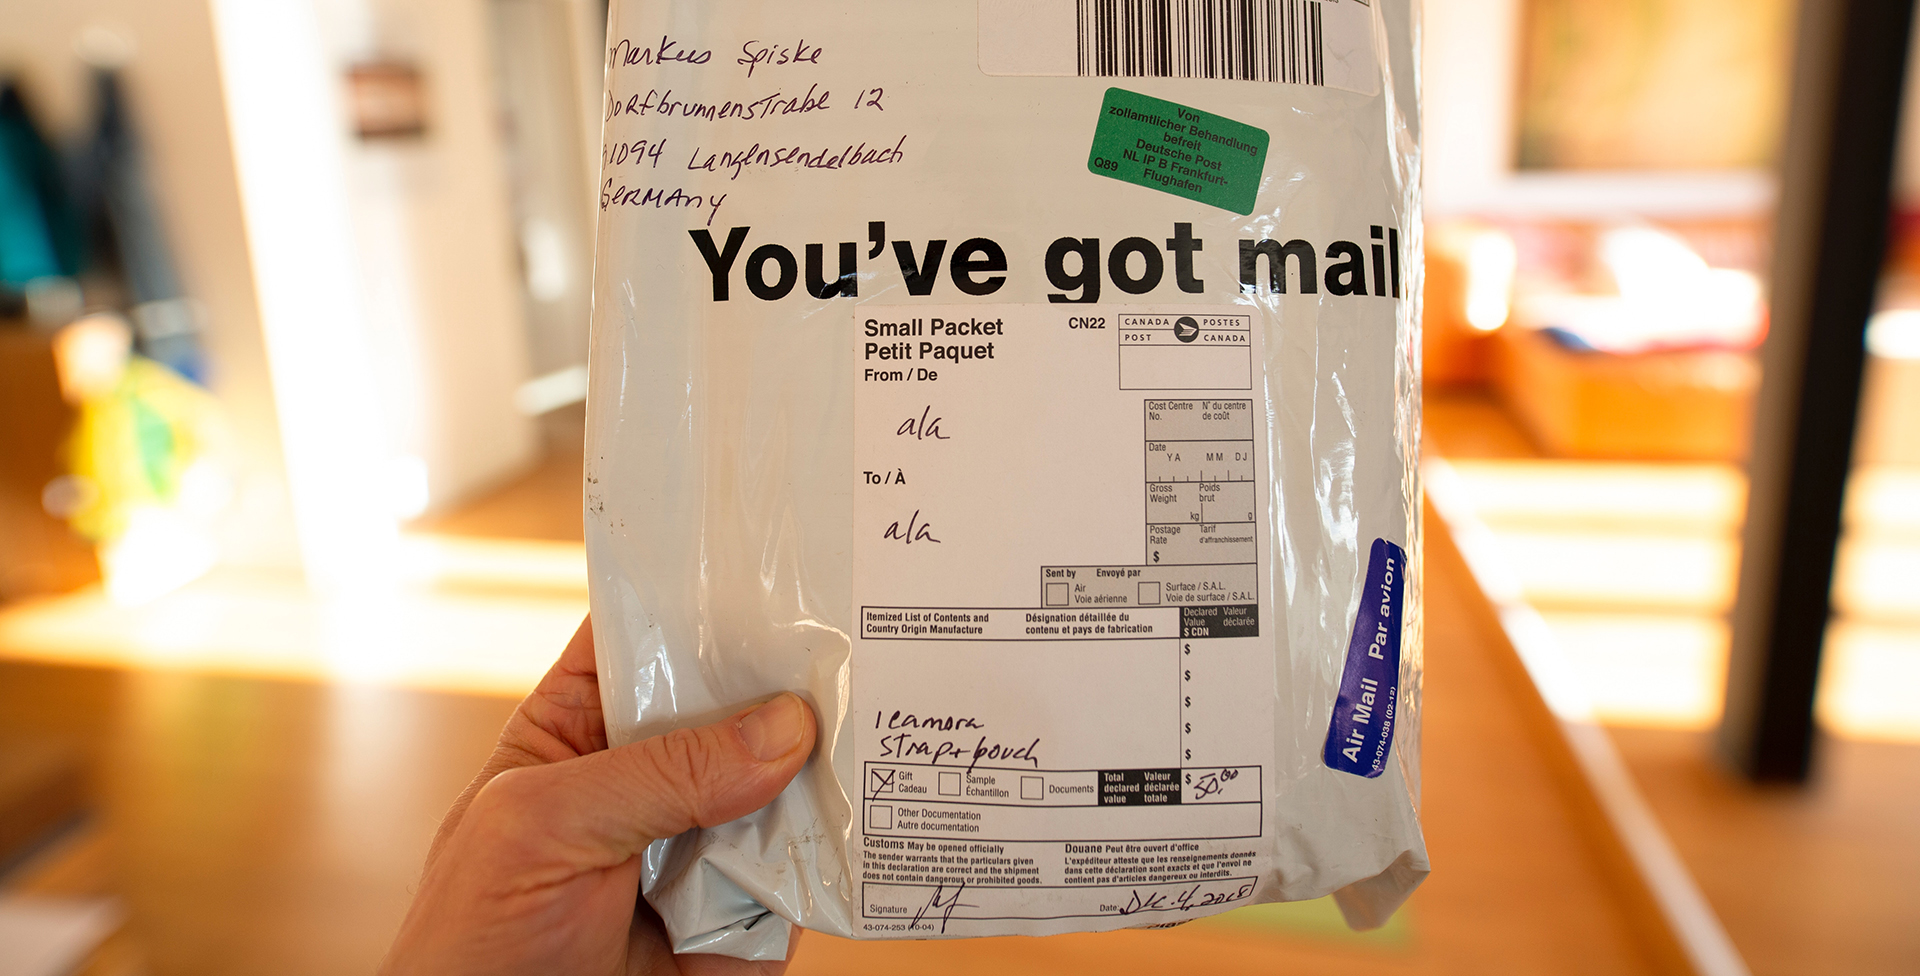 Markus Spiske
Dorfbrunnenstraße 12
91094 Langensendelbach
Germany
Von
zollamtlicher Behandlung
befreit
Deutsche Post
NL IP B Frankfurt-
Q89 Flughafen
You've got mail
Small Packet
Petit Paquet
CN22
CANADA POSTES
POST CANADA
From / De
a/a
To / À
a/a
Cost Centre N° du centre
No. de coût
Date
Y A M M D J
Gross Poids
Weight brut
kg g
Postage Tarif
Rate d'affranchissement
$
Sent by Envoyé par
Air Surface / S.A.L.
Voie aérienne Voie de surface / S.A.L.
Itemized List of Contents and
Country Origin Manufacture
Désignation détaillée du
contenu et pays de fabrication
Declared Valeur
Value déclarée
$ CDN
$
$
$
$
$
1 camera
strap + pouch
Gift
Cadeau
Sample
Échantillon
Documents
Total Valeur
declared déclarée
value totale
$ 50.00
Other Documentation
Autre documentation
Customs May be opened officially
The sender warrants that the particulars given
in this declaration are correct and the shipment
does not contain dangerous or prohibited goods.
Douane Peut être ouvert d'office
L'expéditeur atteste que les renseignements donnés
dans cette déclaration sont exacts et que l'envoi ne
contient pas d'articles dangereux ou interdits.
Signature
Date: Dec. 4, 2018
43-074-253 (10-04)
Air Mail Par avion
43-074-038 (02-12)